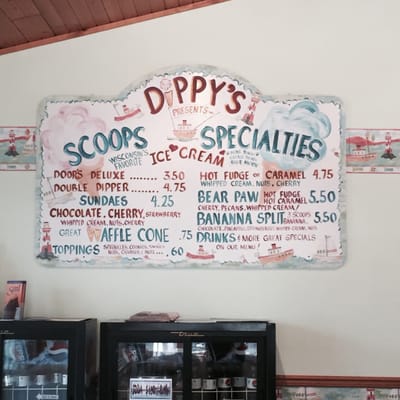 DIPPY'S
PRESENTS
SCOOPS
WISCONSIN'S FAVORITE
ICE CREAM
SPECIALTIES
DOOR'S DELUXE 3.50
DOUBLE DIPPER 4.75
SUNDAES 4.25
CHOCOLATE, CHERRY, STRAWBERRY
WHIPPED CREAM, NUTS, CHERRY
GREAT WAFFLE CONE .75
TOPPINGS .60
HOT FUDGE OR CARAMEL 4.75
WHIPPED CREAM, NUTS, CHERRY
BEAR PAW HOT FUDGE HOT CARAMEL 5.50
CHERRY, PECANS, WHIPPED CREAM!
BANANNA SPLIT 3 SCOOPS BANANNA 5.50
DRINKS & MORE GREAT SPECIALS
ON OUR MENU!